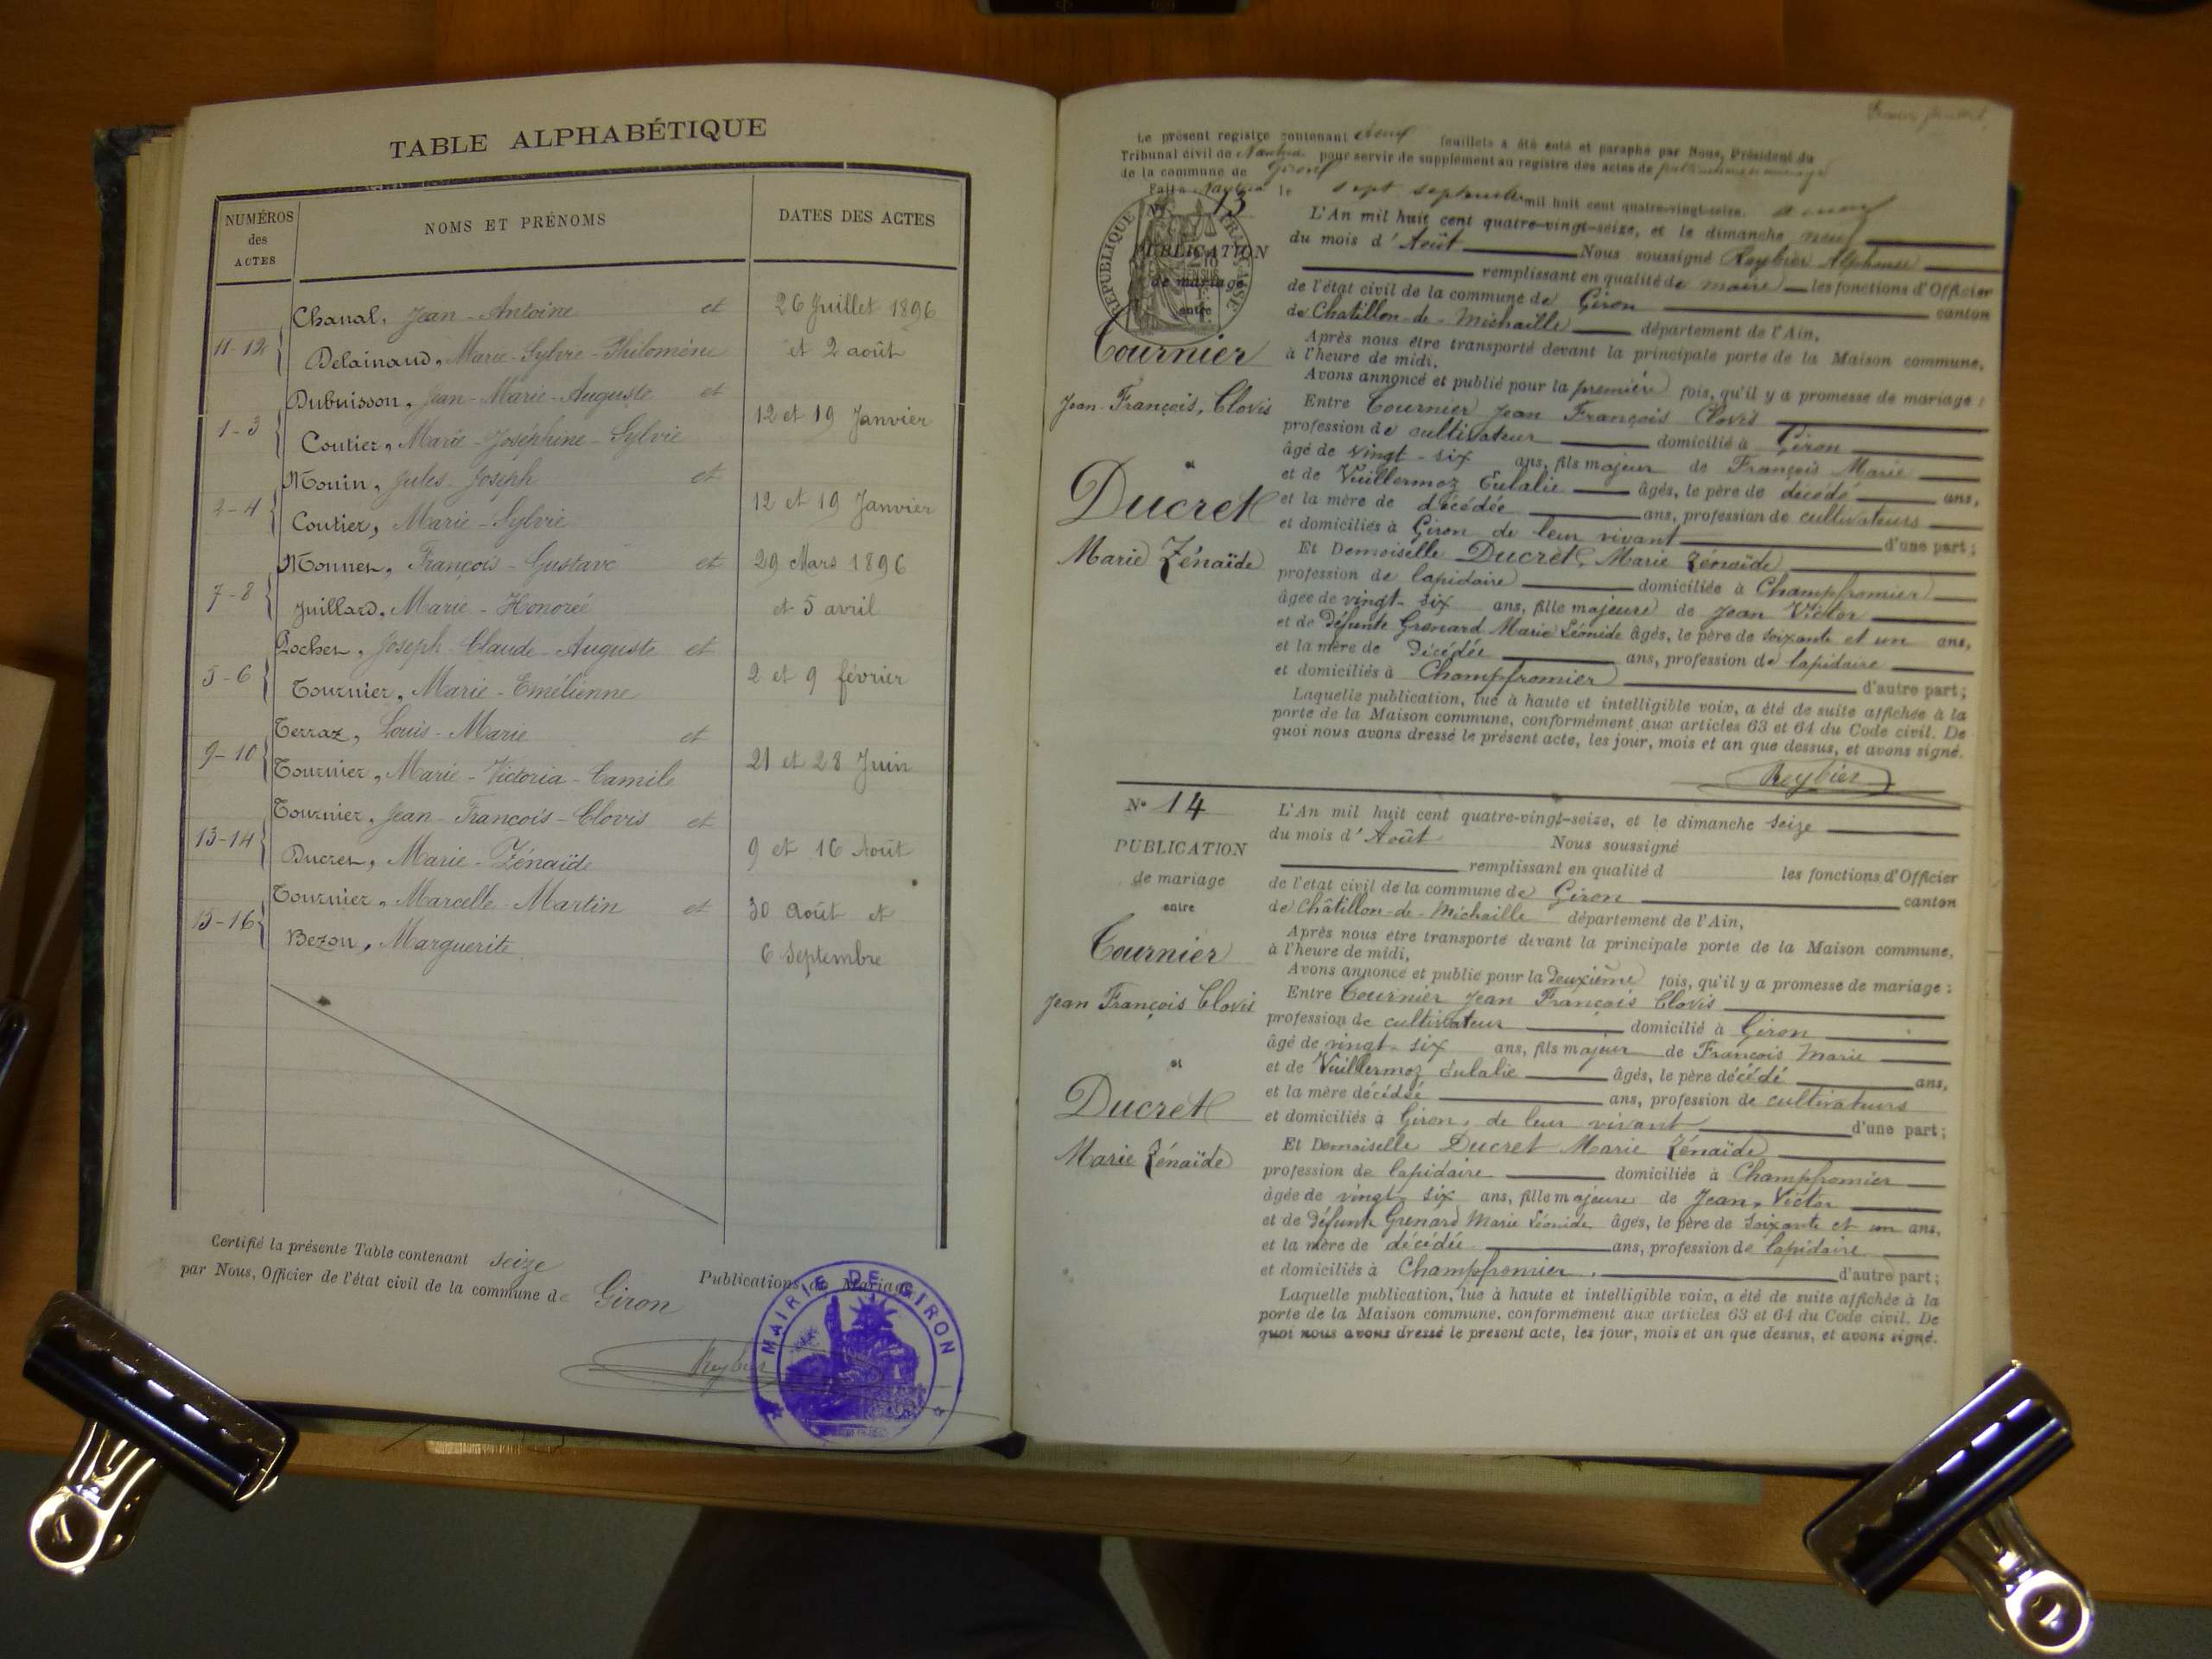 TABLE ALPHABÉTIQUE
NUMÉROS
des
ACTES
NOMS ET PRÉNOMS
DATES DES ACTES
Chanal, Jean-Antoine et
26 Juillet 1896
11-12
Delainaud, Marie-Sylvie-Philomène
et 2 août
Dubuisson, Jean-Marie-Auguste et
1-3
12 et 19 Janvier
Coutier, Marie-Joséphine-Sylvie
Mouin, Jules-Joseph et
2-4
12 et 19 Janvier
Coutier, Marie-Sylvie
Monnet, François-Gustave et
29 Mars 1896
7-8
Juillard, Marie-Honoreé
et 5 avril
Rochet, Joseph-Claude-Auguste et
5-6
2 et 9 février
Tournier, Marie-Emélienne
Terraz, Louis-Marie et
9-10
21 et 28 Juin
Tournier, Marie-Victoria-Camile
Tournier, Jean-François-Clovis et
13-14
9 et 16 Août
Ducret, Marie-Zénaïde
Tournier, Marcelle-Martin et
30 Août et
15-16
Bezon, Marguerite
6 Septembre
Certifié la présente Table contenant seize Publications de Mariage
par Nous, Officier de l'état civil de la commune de Giron
Reybier
MAIRIE DE GIRON
Le présent registre contenant feuillets a été coté et paraphé par Nous, Président du
Tribunal civil de Nantua pour servir de supplément au registre des actes de
de la commune de Giron
Fait à Nantua le sept septembre mil huit cent quatre-vingt-seize.
N° 13
RÉPUBLIQUE FRANÇAISE
PUBLICATION
de mariage
entre
Tournier
Jean-François, Clovis
et
Ducret
Marie Zénaïde
L'An mil huit cent quatre-vingt-seize, et le dimanche neuf
du mois d'Août Nous soussigné Reybier Alphonse
remplissant en qualité de maire les fonctions d'Officier
de l'état civil de la commune de Giron canton
de Chatillon-de-Michaille département de l'Ain,
Après nous être transporté devant la principale porte de la Maison commune,
à l'heure de midi,
Avons annoncé et publié pour la première fois, qu'il y a promesse de mariage :
Entre Tournier Jean François Clovis
profession de cultivateur domicilié à Giron
âgé de vingt-six ans, fils majeur de François Marie
et de Vuillermoz Eulalie âgés, le père de décédé ans,
et la mère de décédée ans, profession de cultivateurs
et domiciliés à Giron de leur vivant d'une part ;
Et Demoiselle Ducret, Marie Zénaïde
profession de lapidaire domiciliée à Champfromier
âgée de vingt-six ans, fille majeure de Jean Victor
et de défunte Grenard Marie Léonide âgés, le père de soixante et un ans,
et la mère de décédée ans, profession de lapidaire
et domiciliés à Champfromier d'autre part ;
Laquelle publication, lue à haute et intelligible voix, a été de suite affichée à la
porte de la Maison commune, conformément aux articles 63 et 64 du Code civil. De
quoi nous avons dressé le présent acte, les jour, mois et an que dessus, et avons signé.
Reybier
N° 14
PUBLICATION
de mariage
entre
Tournier
Jean François Clovis
et
Ducret
Marie Zénaïde
L'An mil huit cent quatre-vingt-seize, et le dimanche seize
du mois d'Août Nous soussigné
remplissant en qualité d les fonctions d'Officier
de l'état civil de la commune de Giron canton
de Châtillon-de-Michaille département de l'Ain,
Après nous être transporté devant la principale porte de la Maison commune,
à l'heure de midi,
Avons annoncé et publié pour la deuxième fois, qu'il y a promesse de mariage :
Entre Tournier Jean François Clovis
profession de cultivateur domicilié à Giron
âgé de vingt-six ans, fils majeur de François Marie
et de Vuillermoz Eulalie âgés, le père décédé ans,
et la mère décédée ans, profession de cultivateurs
et domiciliés à Giron, de leur vivant d'une part ;
Et Demoiselle Ducret Marie Zénaïde
profession de lapidaire domiciliée à Champfromier
âgée de vingt-six ans, fille majeure de Jean, Victor
et de défunte Grenard Marie Léonide âgés, le père de soixante et un ans,
et la mère de décédée ans, profession de lapidaire
et domiciliés à Champfromier. d'autre part ;
Laquelle publication, lue à haute et intelligible voix, a été de suite affichée à la
porte de la Maison commune, conformément aux articles 63 et 64 du Code civil. De
quoi nous avons dressé le présent acte, les jour, mois et an que dessus, et avons signé.